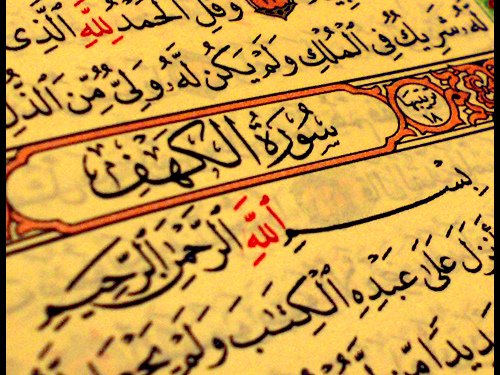 وَقُلِ ٱلْحَمْدُ لِلَّهِ ٱلَّذِى
لَّهُۥ شَرِيكٌ فِى ٱلْمُلْكِ وَلَمْ يَكُن لَّهُۥ وَلِىٌّ مِّنَ ٱلذُّلِّ
سُورَةُ الكَهْفِ
ترتيبها ١٨
بِسْمِ ٱللَّهِ ٱلرَّحْمَٰنِ ٱلرَّحِيمِ
أَنزَلَ عَلَىٰ عَبْدِهِ ٱلْكِتَٰبَ وَلَمْ يَجْعَل